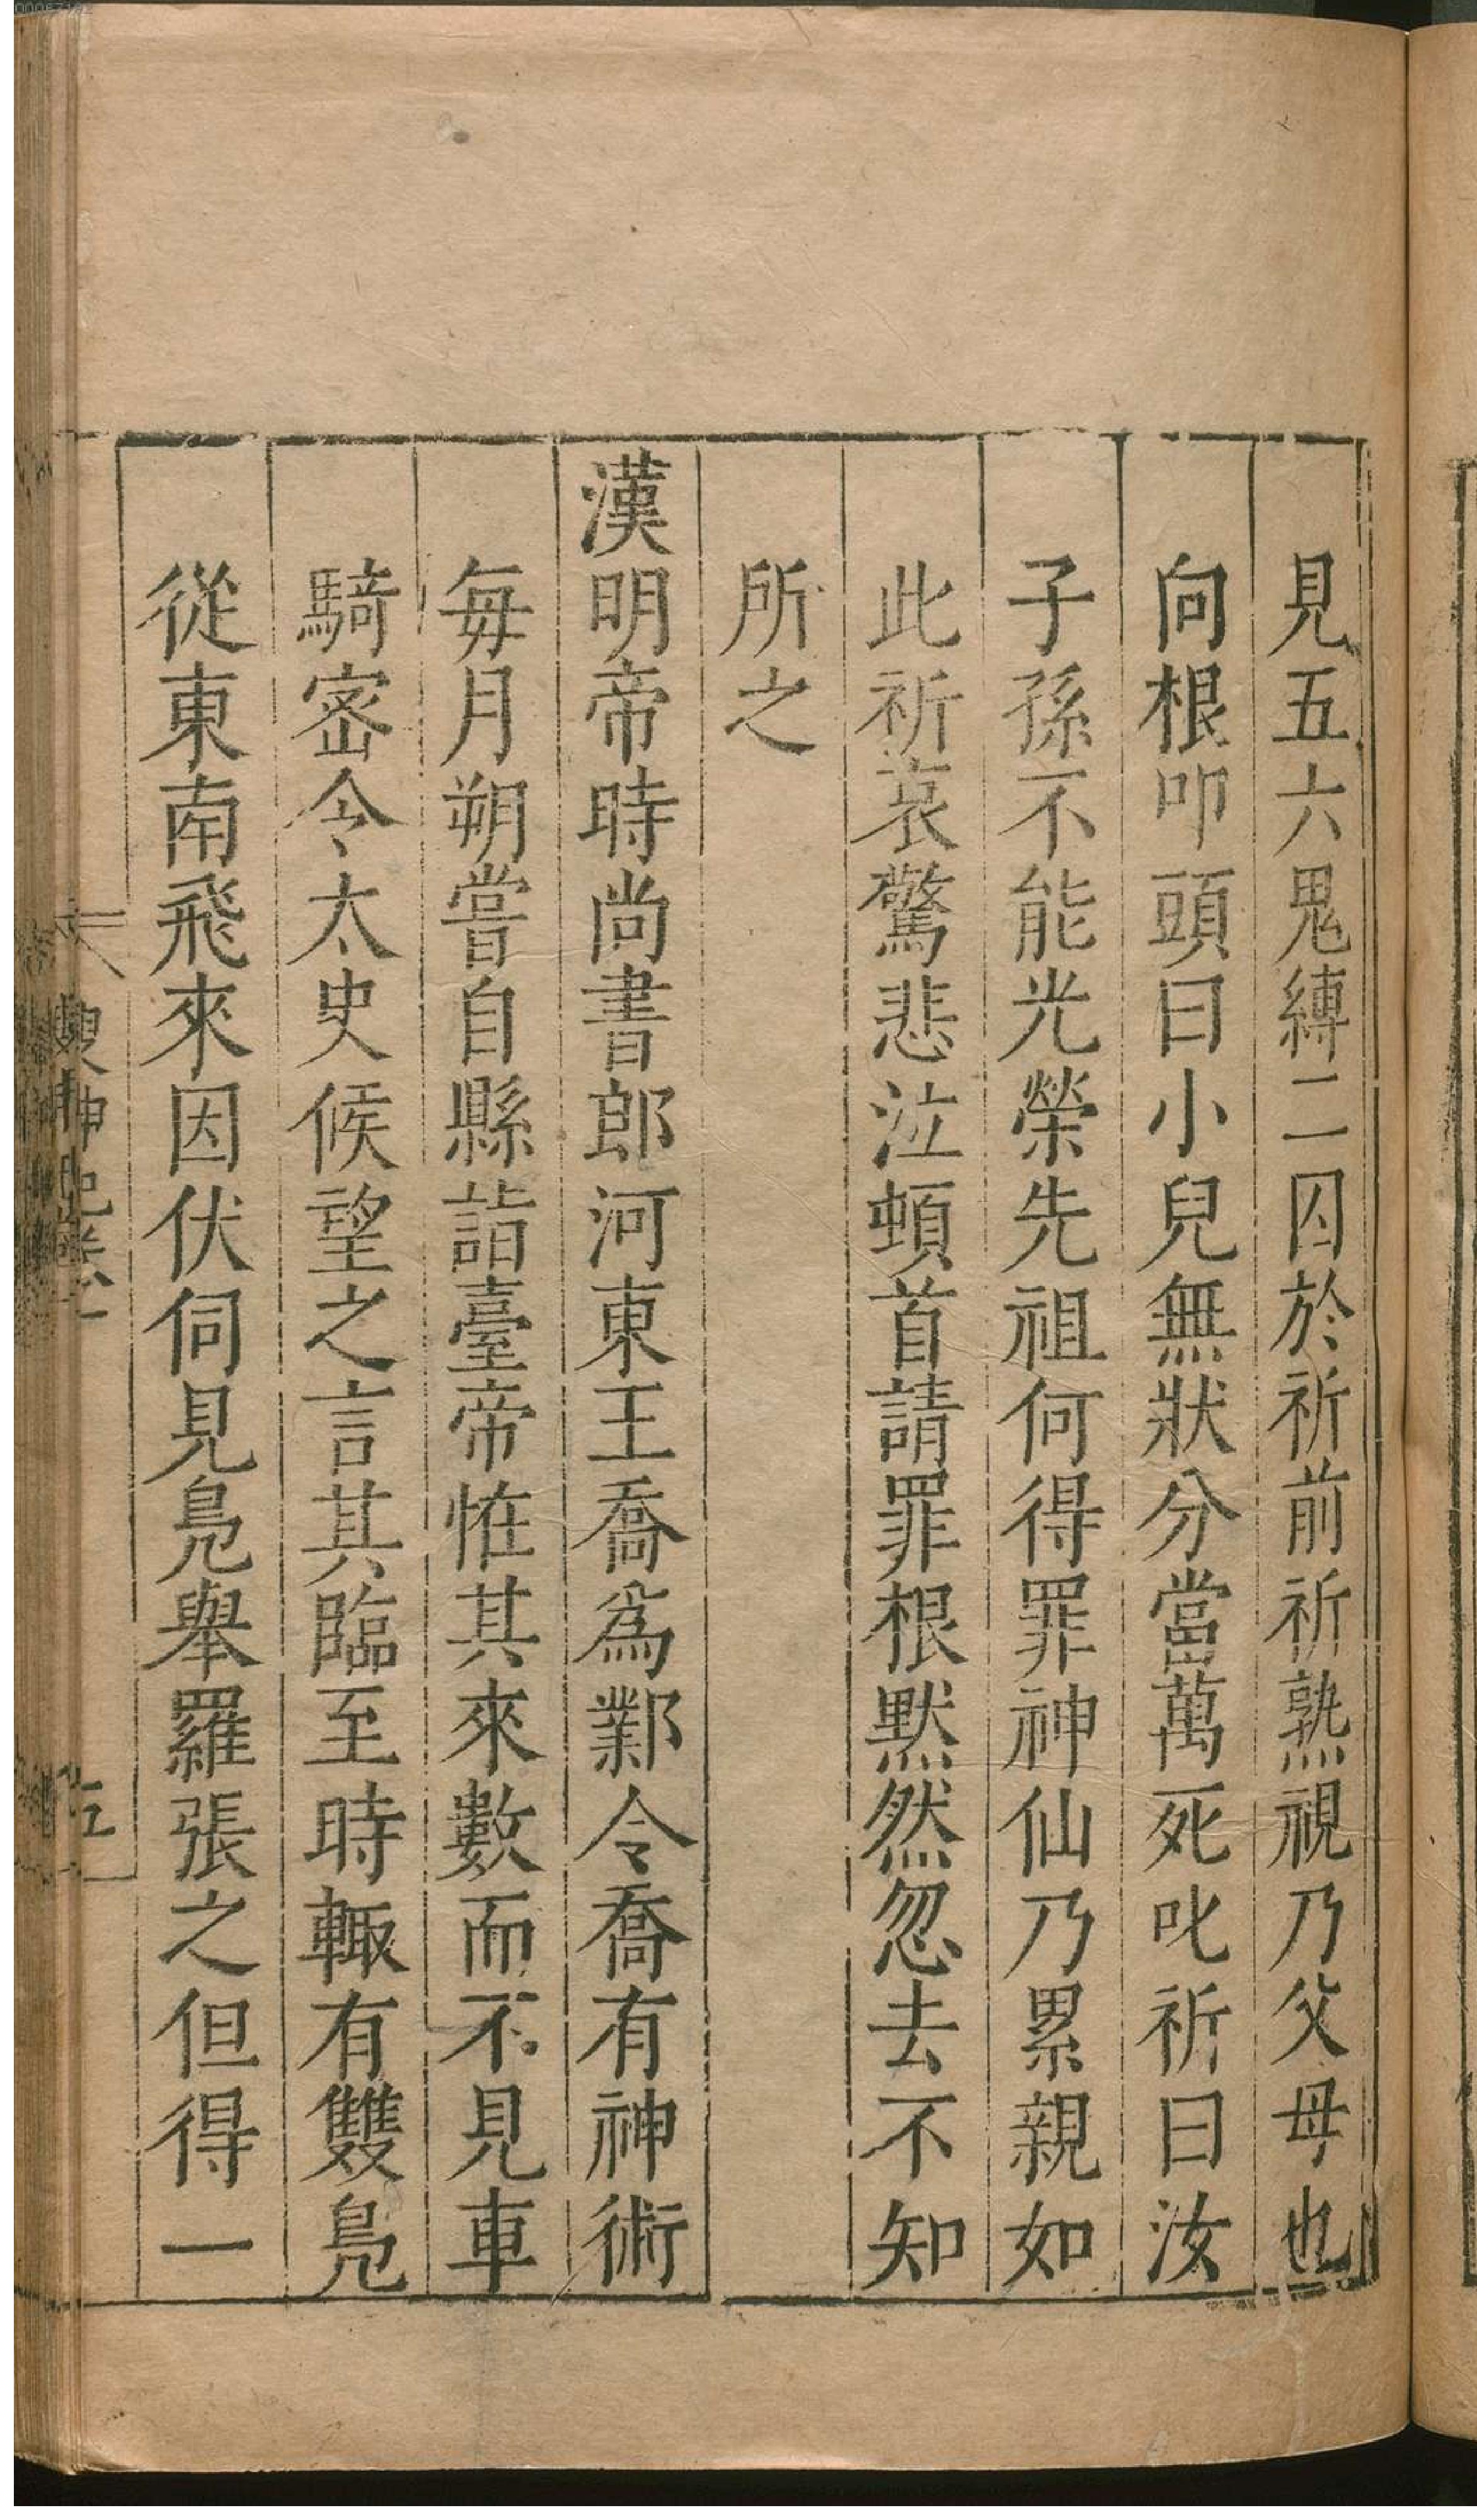 見五六鬼縛二囚於祈前祈熟視乃父母也
向根叩頭曰小兒無狀分當萬死叱祈曰汝
子孫不能光榮先祖何得罪神仙乃累親如
此祈哀驚悲泣頓首請罪根默然忽去不知
所之
漢明帝時尚書郎河東王喬爲鄴令喬有神術
每月朔嘗自縣詣臺帝恠其來數而不見車
騎密令太史候望之言其臨至時輙有雙鳧
從東南飛來因伏伺見鳧舉羅張之但得一
搜神記卷一
五